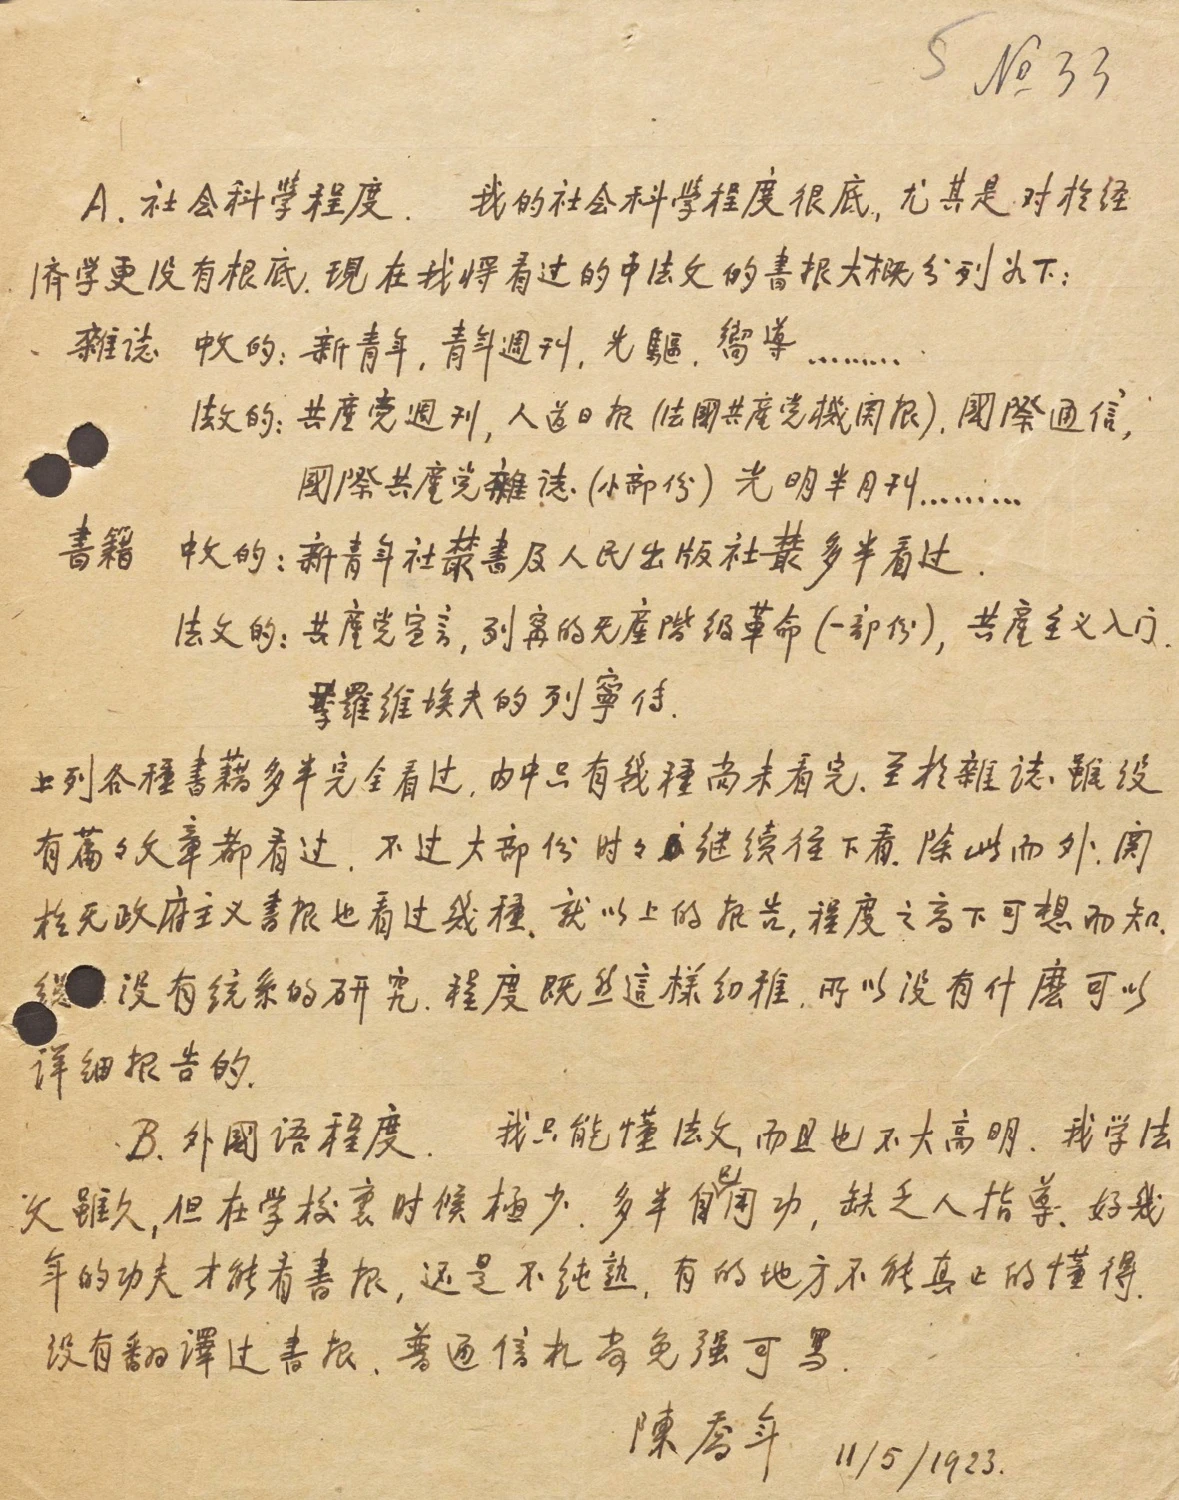 5 № 33
A. 社会科學程度. 我的社会科學程度很底, 尤其是对於经
済学更没有根底. 現在我将看过的中法文的書报大概分列如下:
雜誌 中文的: 新青年, 青年週刊, 先驅, 嚮導.........
法文的: 共產党週刊, 人道日报 (法國共產党機関报), 國際通信,
國際共產党雜誌 (小部份) 光明半月刊.........
書籍 中文的: 新青年社叢書及人民出版社叢多半看过.
法文的: 共產党宣言, 列寧的无產階级革命 (一部份), 共產主义入门.
羅維埃夫的列寧传.
上列各種書籍多半完全看过, 内中只有幾種尚未看完. 至於雜誌雖没
有篇々文章都看过, 不过大部份时々继续往下看. 除此而外, 関
於无政府主义書报也看过幾種. 就以上的报告, 程度之高下可想而知.
總 没有统系的研究. 程度既然這樣幼稚, 所以没有什麽可以
详细报告的.
B. 外國语程度. 我只能懂法文, 而且也不大高明. 我学法
文雖久, 但在学校裏时候極少. 多半自己用功, 缺乏人指導. 好幾
年的功夫才能看書报, 还是不纯熟, 有的地方不能真正的懂得.
没有翻譯过書报. 普通信札尚免强可写.
陳喬年 11/5/1923.